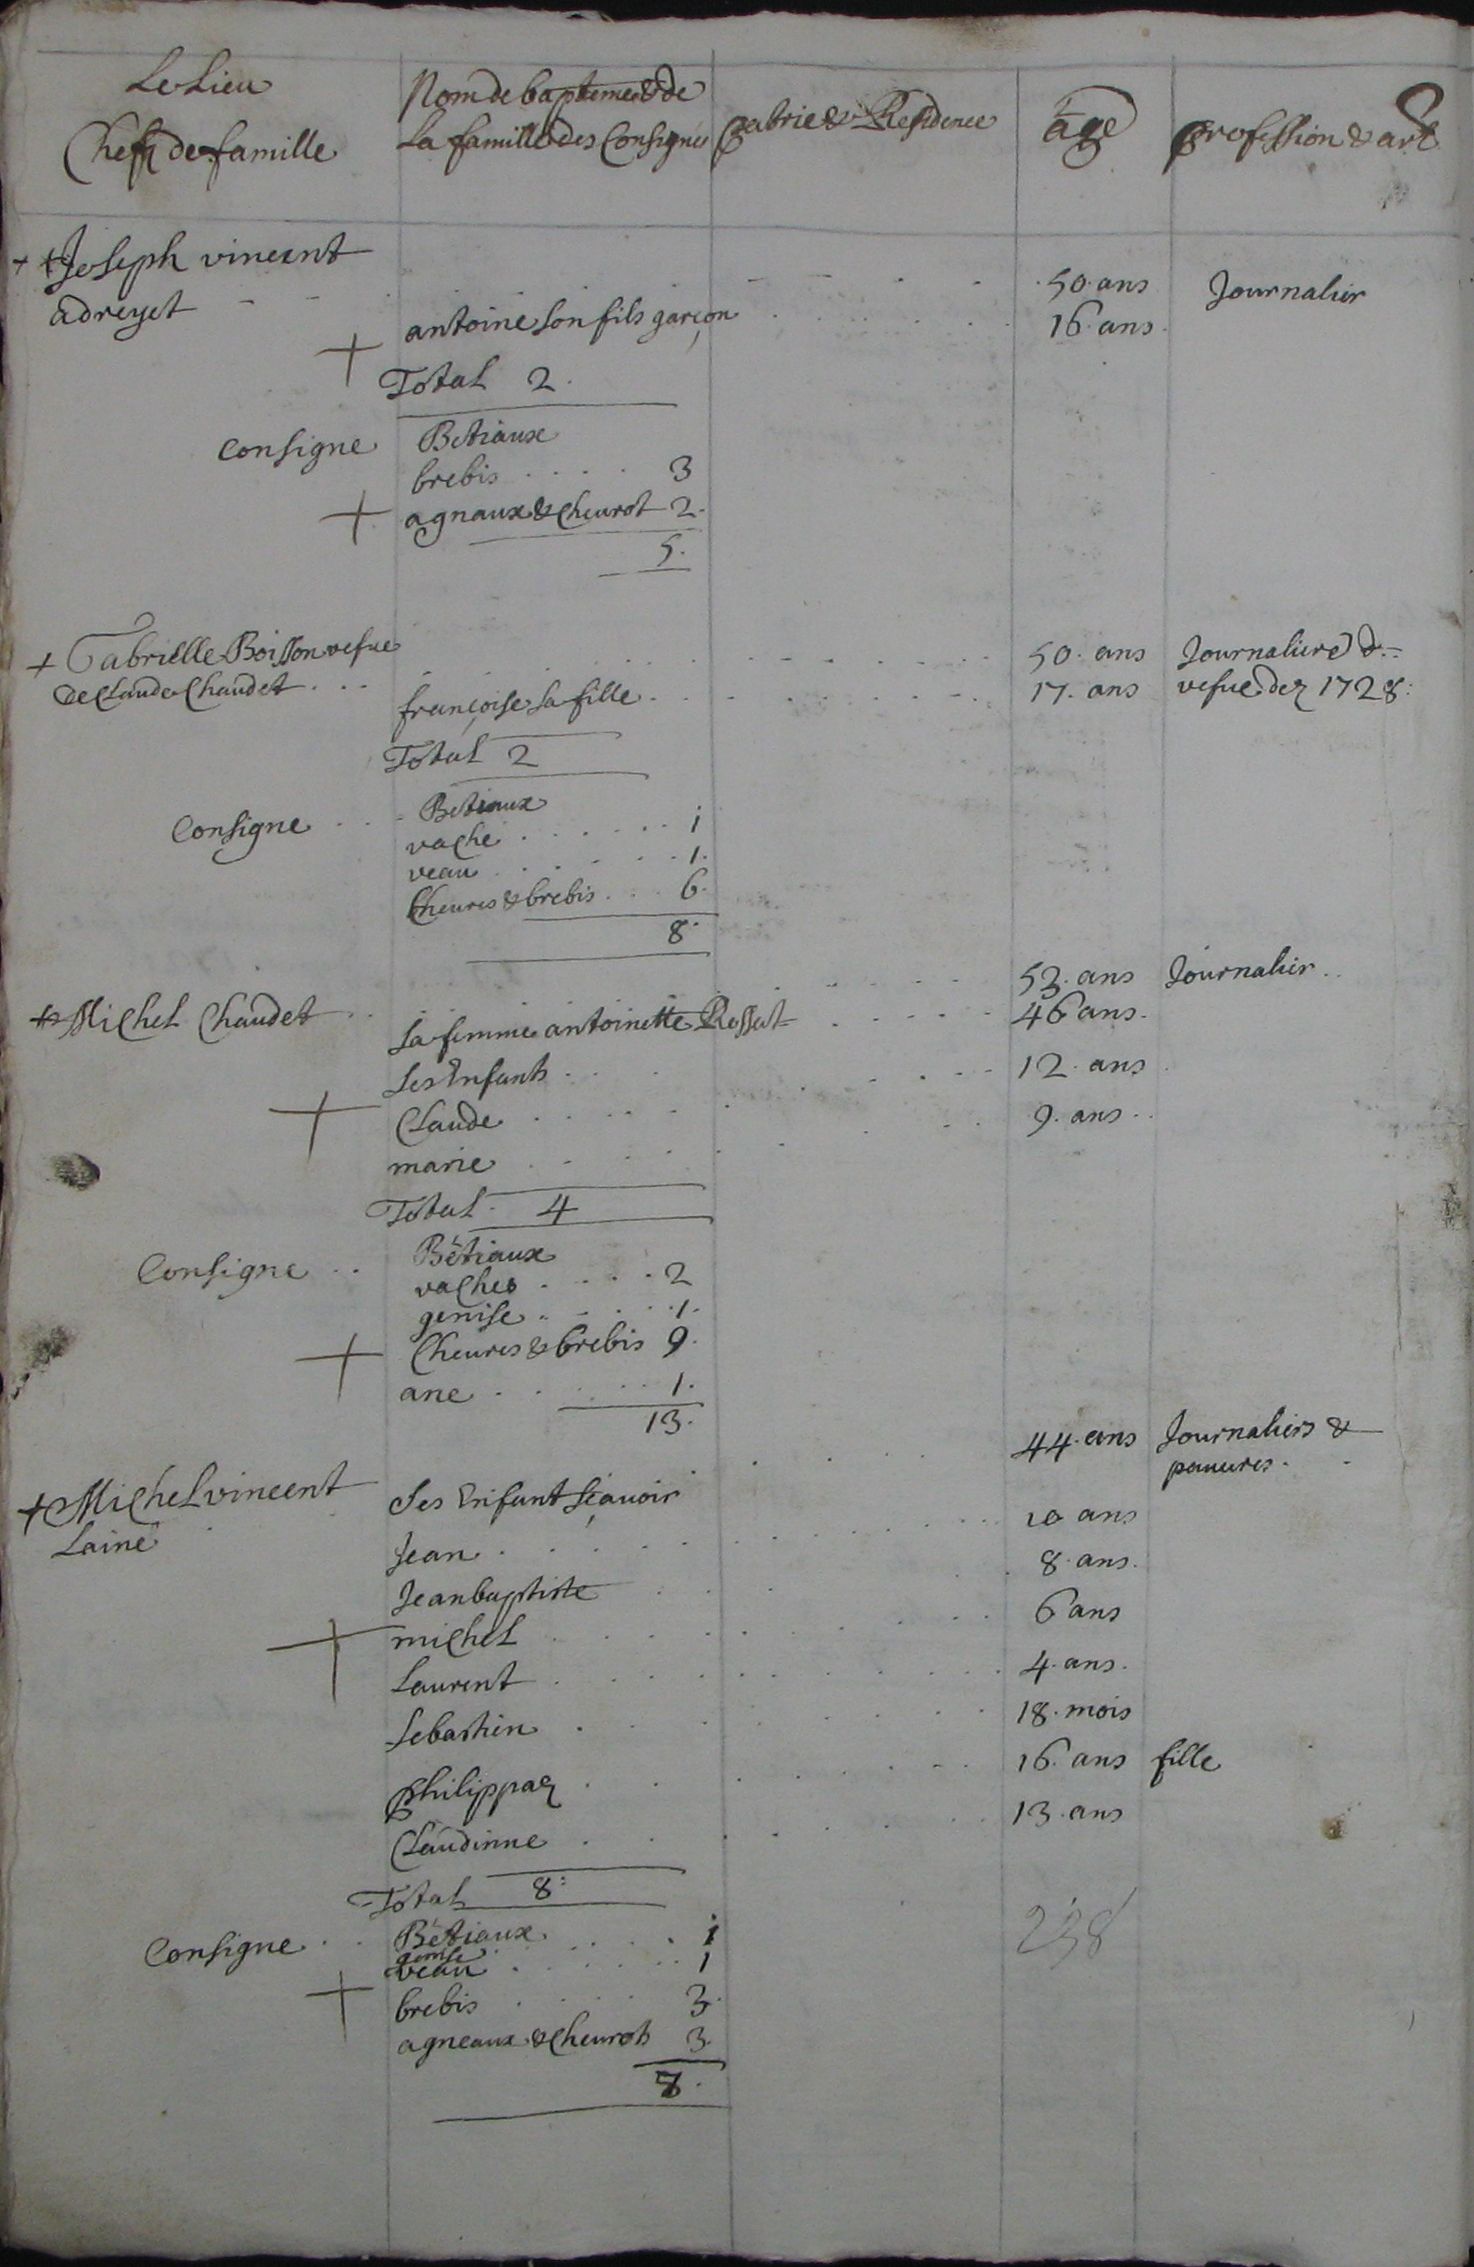 Le Lieu
Chefz de famille
Nom de bapteme & de
La famille des Consignés
patrie & Residence
âge
profession & art
+ + Joseph vincent
adreyet
50. ans Journalier
antoine son fils garçon 16. ans
Total 2.
Consigne Betiaux
brebis 3
agnaux & cheurot 2.
5.
+ Gabrielle Boisson vefue 50. ans Journaliere &
de Claude Chaudet
françoise sa fille 17. ans vefue dez 1728:
Total 2
Consigne Betiaux
vache 1
veau 1.
Cheures & brebis 6.
8.
+ Michel Chaudet 53. ans Journalier
sa femme antoinette 46 ans.
ses Enfants 12. ans
Claude 9. ans
marie
Total 4
Consigne Bétiaux
vaches 2
genise 1.
Cheures & brebis 9.
ane 1.
13.
+ Michel vincent 44. ans Journaliers &
pauures.
Lainé
Ses Enfant sçauoir
Jean 10 ans
Jean baptiste 8. ans.
michel 6 ans
Laurent 4. ans.
Sebastien 18. mois
philippaz 16. ans fille
Claudinne 13. ans
Total 8:
Consigne Bétiaux 1
genise
veau 1
brebis 3.
agneaux & cheurots 3.
8.
238